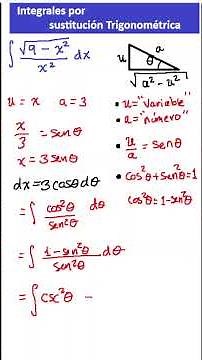 Integrales por
sustitución Trigonométrica
∫ √(9 - x²) / x² dx
u
a
θ
√(a² - u²)
u = x a = 3
• u = "variable"
• a = "número"
x/3 = senθ
x = 3senθ
• u/a = senθ
dx = 3cosθdθ
• cos²θ + sen²θ = 1
cos²θ = 1 - sen²θ
= ∫ cos²θ / sen²θ dθ
= ∫ 1 - sen²θ / sen²θ dθ
= ∫ csc²θ -